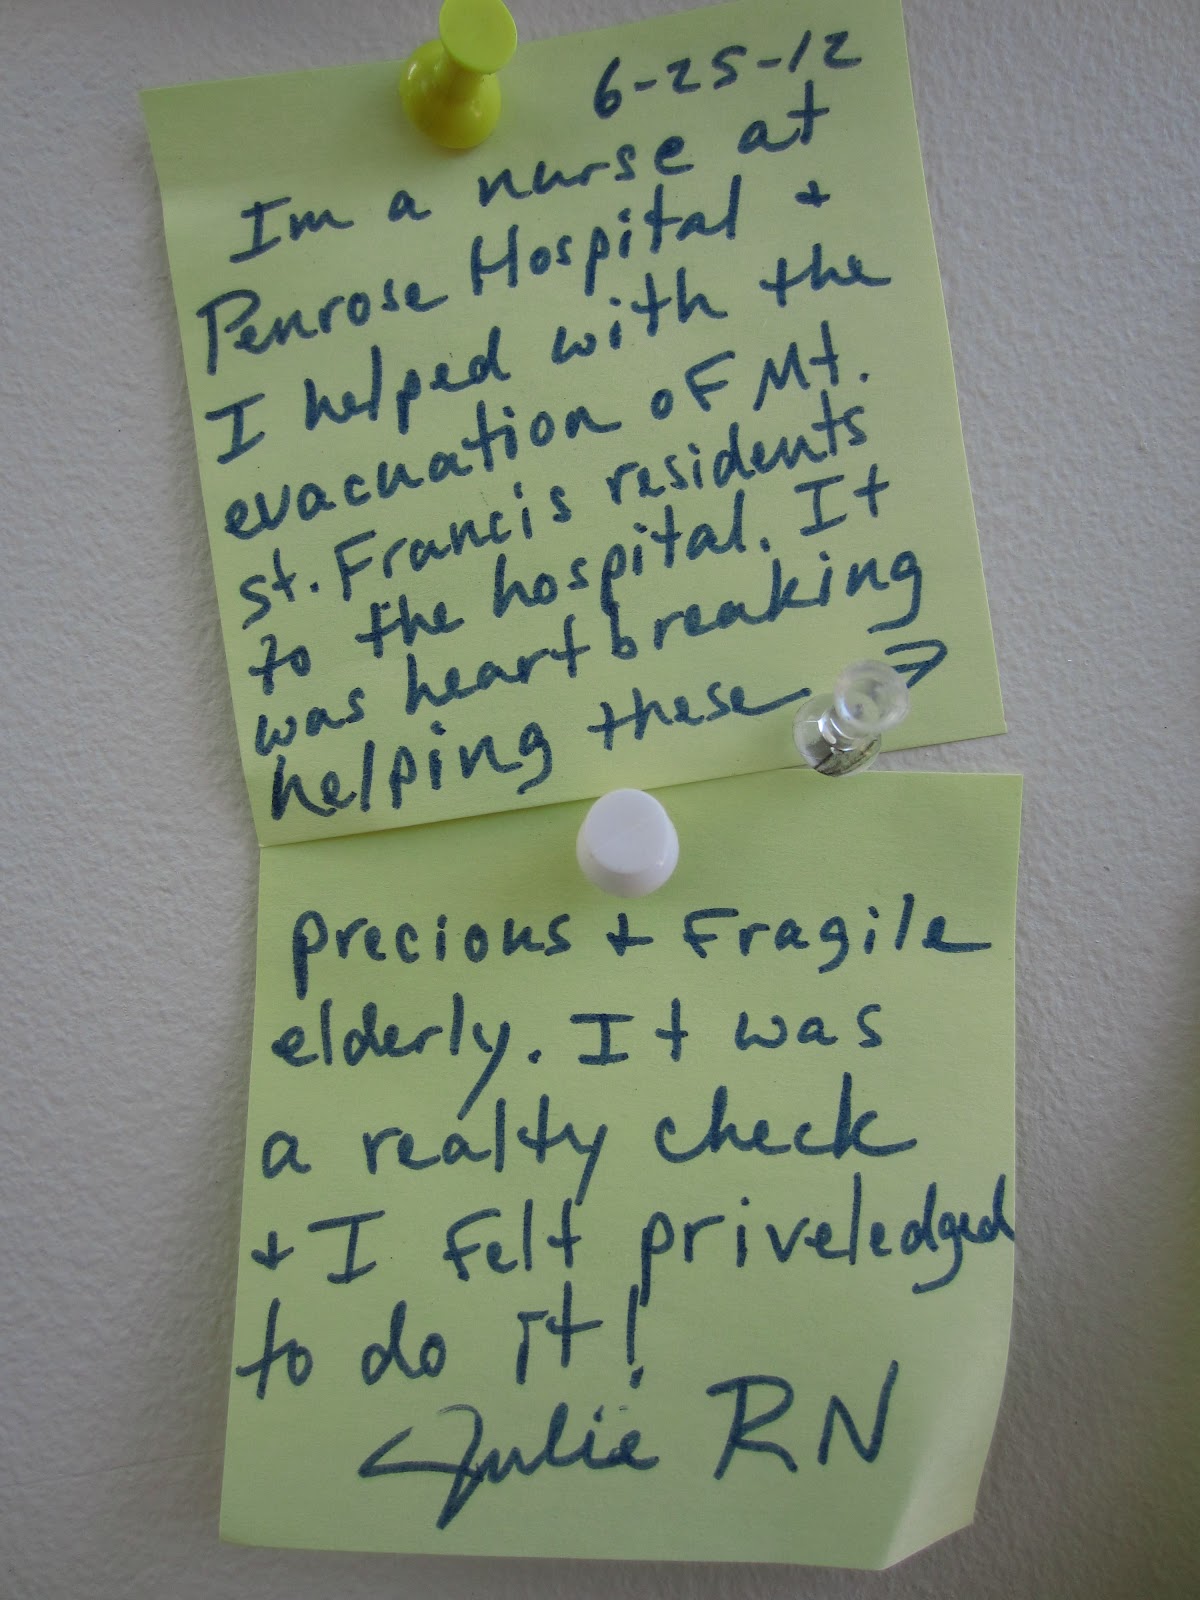 6-25-12
Im a nurse at
Penrose Hospital +
I helped with the
evacuation of Mt.
st. Francis residents
to the hospital. It
was heart breaking
helping these →
precious + Fragile
elderly. It was
a realty check
+ I felt priveledged
to do it!
Julie RN